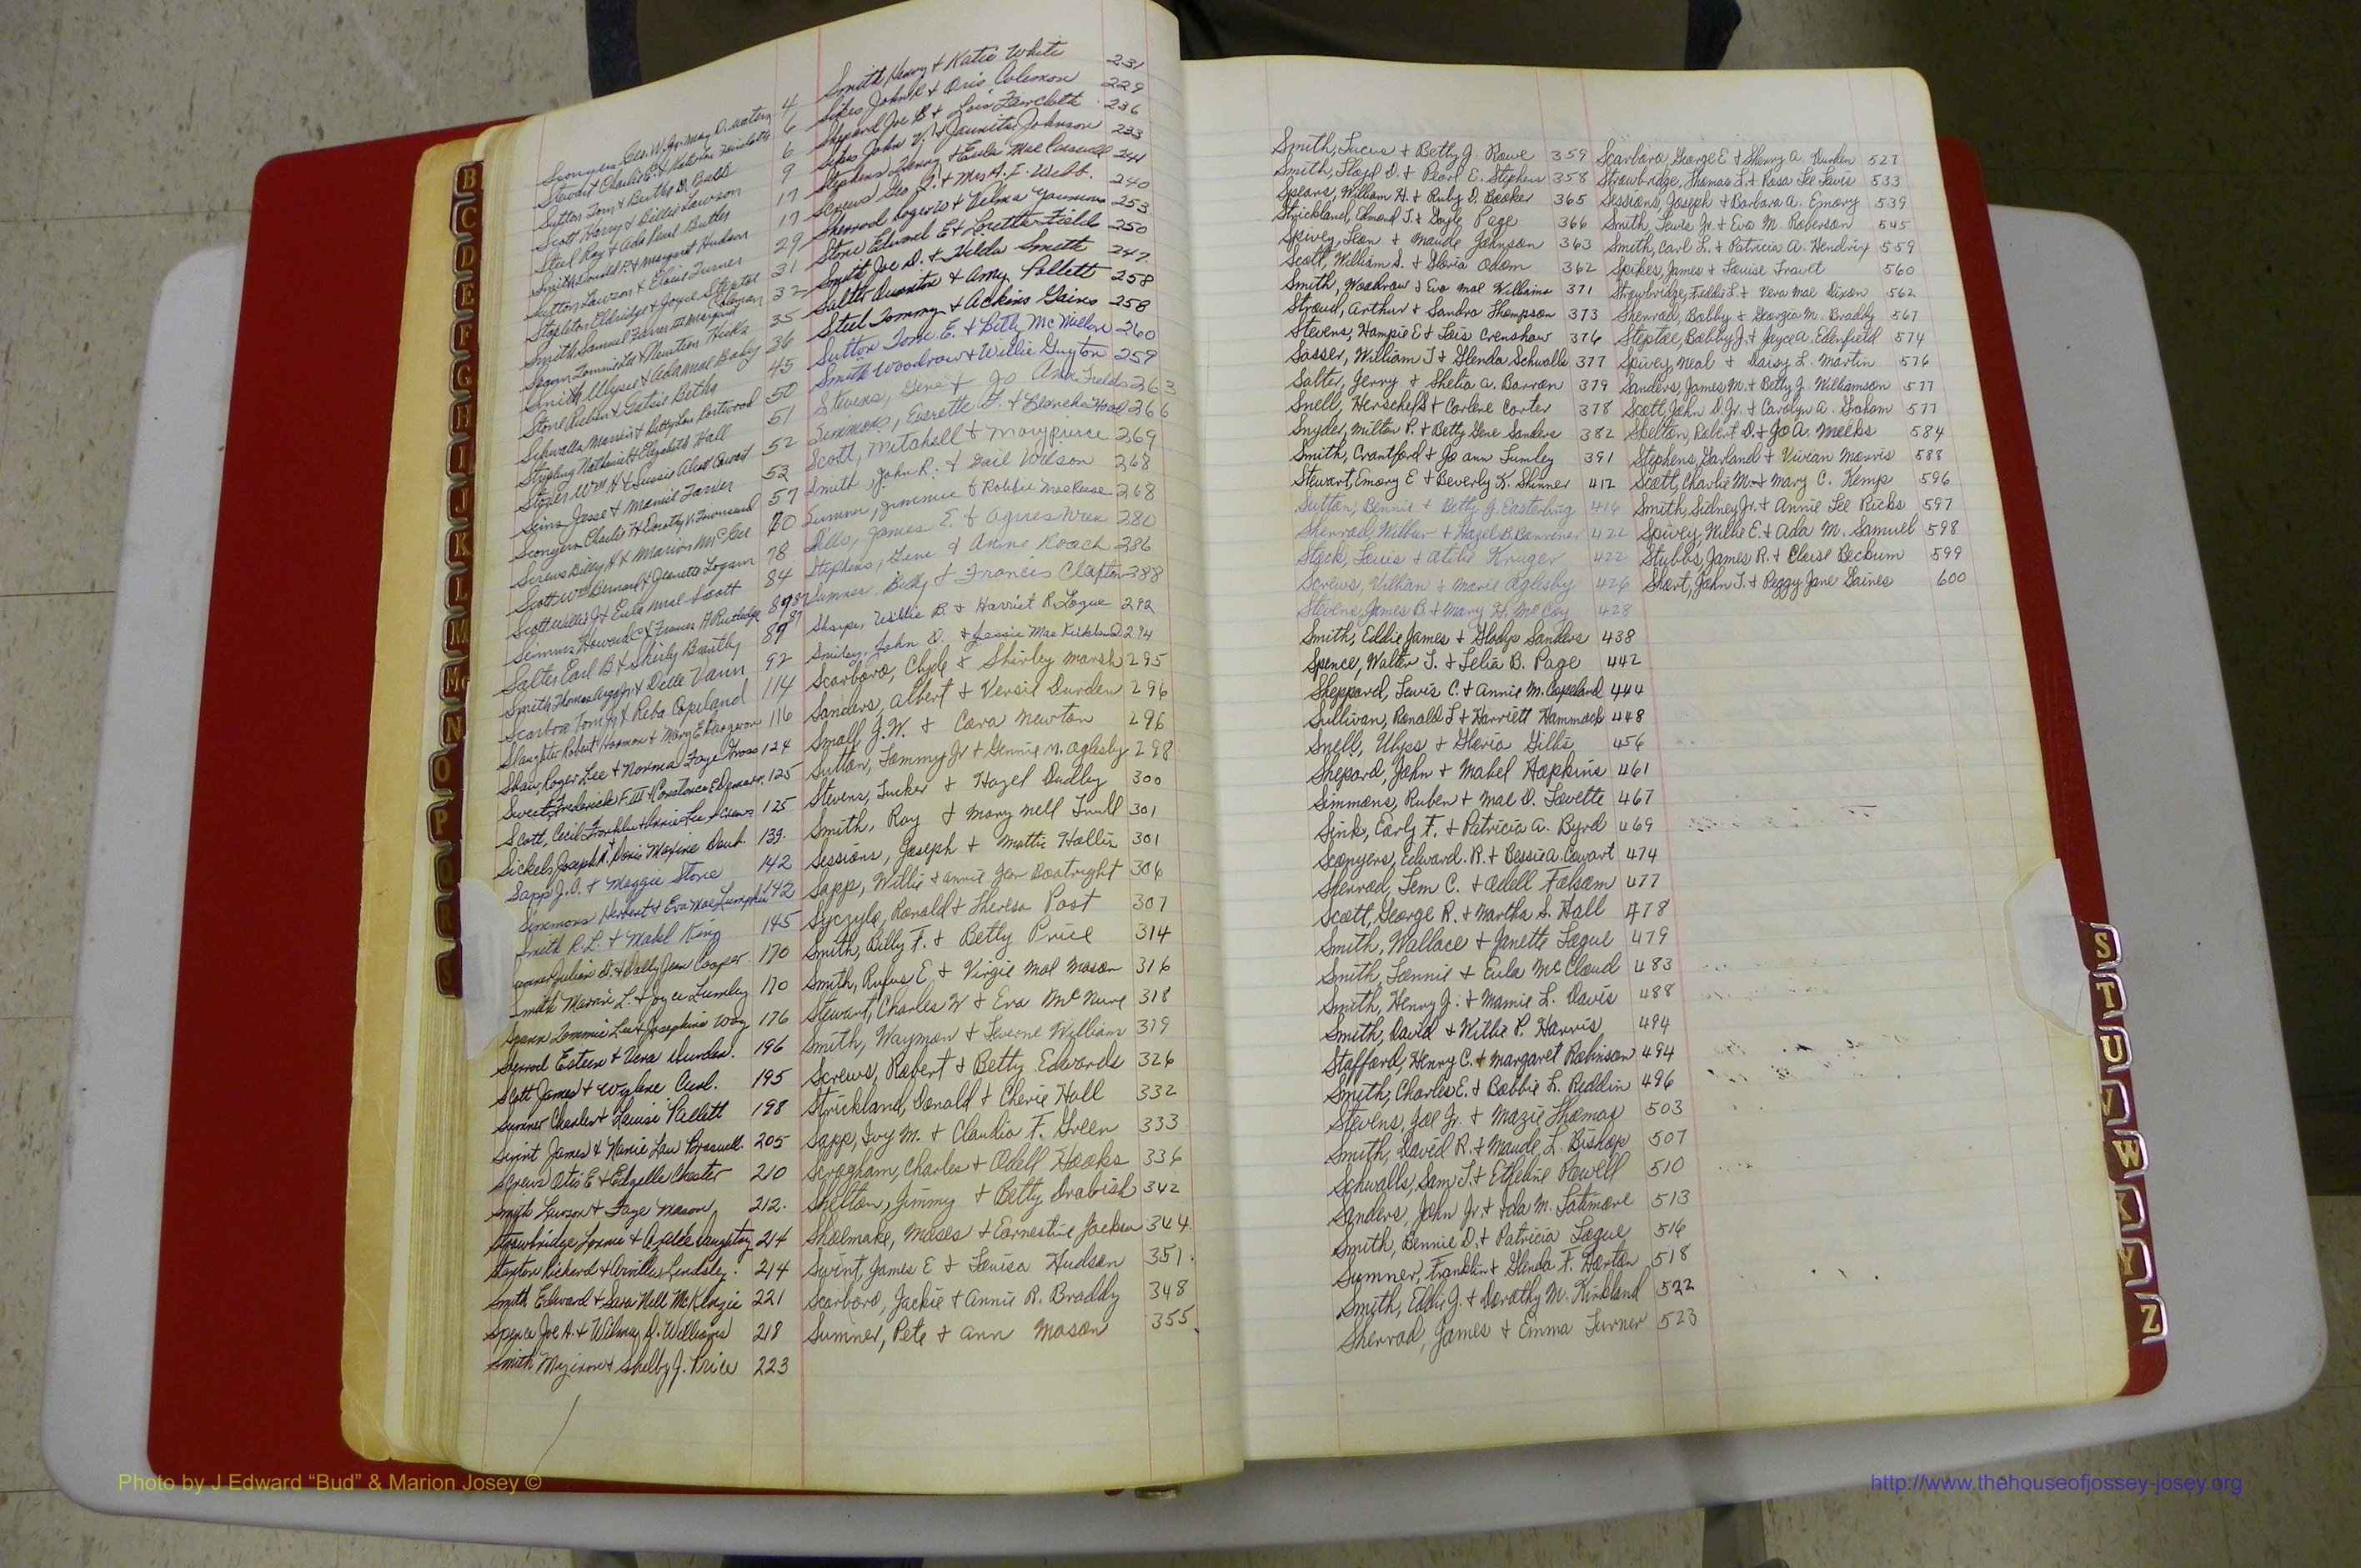 Scott Harry & Billie Lawson 9
Steel Roy & Ada Pearl Butler 17
Smith Donald F. & Margaret Hudson 17
Sutton Lawson & Eloise Turner 29
Smith Ulysee & Ada Mae Baby 36
Stone Ruben & Gatsie Betha 45
Sterling Nathaniel & Elizabeth Hall 51
Sims Jesse & Mamie Tarver 53
Screws Billy H & Marion McGee 70
Scott Wm Bernard & Jeanette Logann 78
Scott Willis J & Eula Mae Scott 84
Salter Earl B & Shirly Brantly 89
Scarboro Tom Jr & Reba Copeland 114
Shaw, Roger Lee & Norma Faye Gross 124
Sapp J.C. & Maggie Stone 142
Simmons Herbert & Eva Mae Lumpkin 142
Smith R.L. & Mabel King 145
Smith Marvin L. & Joyce Lumley 170
Spann Tommie Lee & Josephine Way 176
Sherrod Esteen & Vera Durden. 196
Scott James & Wylene Curl. 195
Sumner Charles & Louise Pallett 198
Swint James & Nanie Lou Braswell. 205
Screws Otis E & Edgelle Chester 210
Smith Lawson & Faye Mason 212.
Stanton Richard & Orvillee Lindsley. 214
Smith Edward & Sara Nell McKenzie 221
Spence Joe A. & Wilma D. Williams 218
Smith Myirow & Shelby J. Price 223
Smith, Henry & Katie White 231
Sikes John R & Oris Coleman 229
Shepard Joe B & Lois Faircloth 236
Sikes John V. & Jaunita Johnson 233
Stephens Henry & Eula Mae Braswell 241
Screws Geo L. & Mrs. H. F. Webb. 240
Sherrod Rogers & Velma Youmans 253
Stone Edward E & Loretta Fields 250
Smith Joe D. & Hilda Smith 247
Salter Quinton & Amy Pollett 258
Steel Tommy & Adkins Gains 258
Sutton Tom E. & Betty McMillan 260
Smith Woodrow & Willie Guyton 259
Stevens, Gene & Jo Ann Fields 263
Simmons, Everette F. & Blanche Hood 266
Scott, Mitchell & Mary Pierce 269
Smith, John R. & Gail Wilson 268
Sumner, Jimmie & Robbie Mae Reese 268
Sills, James E. & Agnes Wren 280
Stephens, Gene & Anine Roach 286
Sumner, Billy & Francis Claxton 288
Sharpe, Willie B. & Harriet R. Logue 292
Smiley, John D. & Jessie Mae Kirkland 294
Scarboro, Clyde & Shirley Marsh 295
Sanders, Albert & Versie Durden 296
Small J.W. & Cora Newton 296
Sutton, Tommy Jr & Gennie M. Oglesby 298
Stevens, Tucker & Hazel Dudley 300
Smith, Roy & Mary Nell Trull 301
Sessions, Joseph & Mattie Hollis 301
Sapp, Willie & Annie Jean Boatright 306
Syczylo, Ronald & Theresa Post 307
Smith, Billy F. & Betty Price 314
Smith, Rufus E & Virgie Mae Mason 316
Stewart, Charles W & Eva McNure 318
Smith, Wayman & Leverne William 319
Screws, Robert & Betty Edwards 326
Strickland, Donald & Cherie Hall 332
Sapp, Ivy M. & Claudia F. Green 333
Scrogham, Charles & Odell Hooks 336
Shelton, Jimmy & Betty Drabish 342
Shoelmake, Moses & Earnestine Jackson 344.
Swint, James E & Louisa Hudson 351.
Scarboro, Jackie & Annie R. Braddy 348
Sumner, Pete & Ann Mason 355
Smith, Lucus & Betty J. Rowe 359
Smith, Floyd D. & Pearl E. Stephen 358
Spears, William H. & Ruby D. Booker 365
Strickland, Edmond J. & Doyle Page 366
Spivey, Leon & Maude Johnson 363
Scott, William S. & Gloria Odom 362
Smith, Woodrow & Eva Mae Williams 371
Stroud, Arthur & Sandra Thompson 373
Stevens, Hampie E & Lois Crenshaw 376
Sasser, William J & Glenda Schwalls 377
Salter, Jerry & Shelia A. Barron 379
Snell, Herschel & Carlene Carter 378
Snyder, Milton P. & Betty Gene Sanders 382
Smith, Crantford & Jo Ann Lumley 391
Stewart, Emory E & Beverly K. Skinner 412
Sutton, Bennie & Betty J. Easterling 416
Sherrod, Wilbur & Hazel B. Bannener 422
Stack, Louis & Atilie Kruger 422
Screws, Villian & Marie Oglesby 426
Stevens, James B. & Mary H. McCoy 428
Smith, Eddie James & Gladys Sanders 438
Spence, Walter J. & Lelia B. Page 442
Sheppard, Lewis C. & Annie M. Copeland 444
Sullivan, Ronald L & Harriett Hammock 448
Snell, Ulyss & Gloria Gillis 456
Shepard, John & Mabel Hopkins 461
Simmons, Ruben & Mae D. Lovette 467
Sink, Early F. & Patricia A. Byrd 469
Sconyers, Edward. R. & Bessie A. Cowart 474
Sherrod, Lem C. & Odell Folsom 477
Scott, George R. & Martha S. Hall 478
Smith, Wallace & Janette Logue 479
Smith, Lonnie & Eula McCloud 483
Smith, Henry J. & Mamie L. Davis 488
Smith, David & Willie P. Harris 494
Stafford, Henry C. & Margaret Robinson 494
Smith, Charles E. & Bobbie L. Reddin 496
Stevens, Joe Jr. & Mazie Thomas 503
Smith, David R. & Maude L. Bishop 507
Schwalls, Sam J. & Etheline Powell 510
Sanders, John Jr. & Ida M. Latimore 513
Smith, Bennie D. & Patricia Logue 516
Sumner, Franklin & Glenda F. Horton 518
Smith, Eddie J. & Dorothy M. Kirkland 522
Sherrod, James & Emma Turner 523
Scarboro, George E & Sherry A. Durden 527
Strowbridge, Thomas L. & Rosa Lee Lewis 533
Sessions, Joseph & Barbara A. Emory 539
Smith, Lewis Jr. & Eva M. Roberson 545
Smith, Carl L. & Patricia A. Hendrix 559
Spikes, James & Louise Trovet 560
Strowbridge, Freddie L. & Vera Mae Dixon 562
Sherrod, Bobby & Georgia M. Braddy 567
Steptoe, Bobby J. & Jayce A. Edenfield 574
Spivey, Neal & Daisy L. Martin 576
Sanders, James M. & Betty J. Williamson 577
Scott, John D. Jr. & Carolyn A. Graham 577
Shelton, Robert D. & Jo A. Meeks 584
Stephens, Garland & Vivian Morris 588
Scott, Charlie M. & Mary C. Kemp 596
Smith, Sidney Jr. & Annie Lee Ricks 597
Spivey, Willie E. & Ada M. Samuel 598
Stubbs, James R. & Eloise Beckum 599
Short, John T. & Peggy Jane Gaines 600
B
C
D
E
F
G
H
I
J
K
L
M
Mc
N
O
P
Q
R
S
S
T
U
V
W
X
Y
Z
Photo by J Edward “Bud” & Marion Josey ©
http://www.thehouseofjossey-josey.org